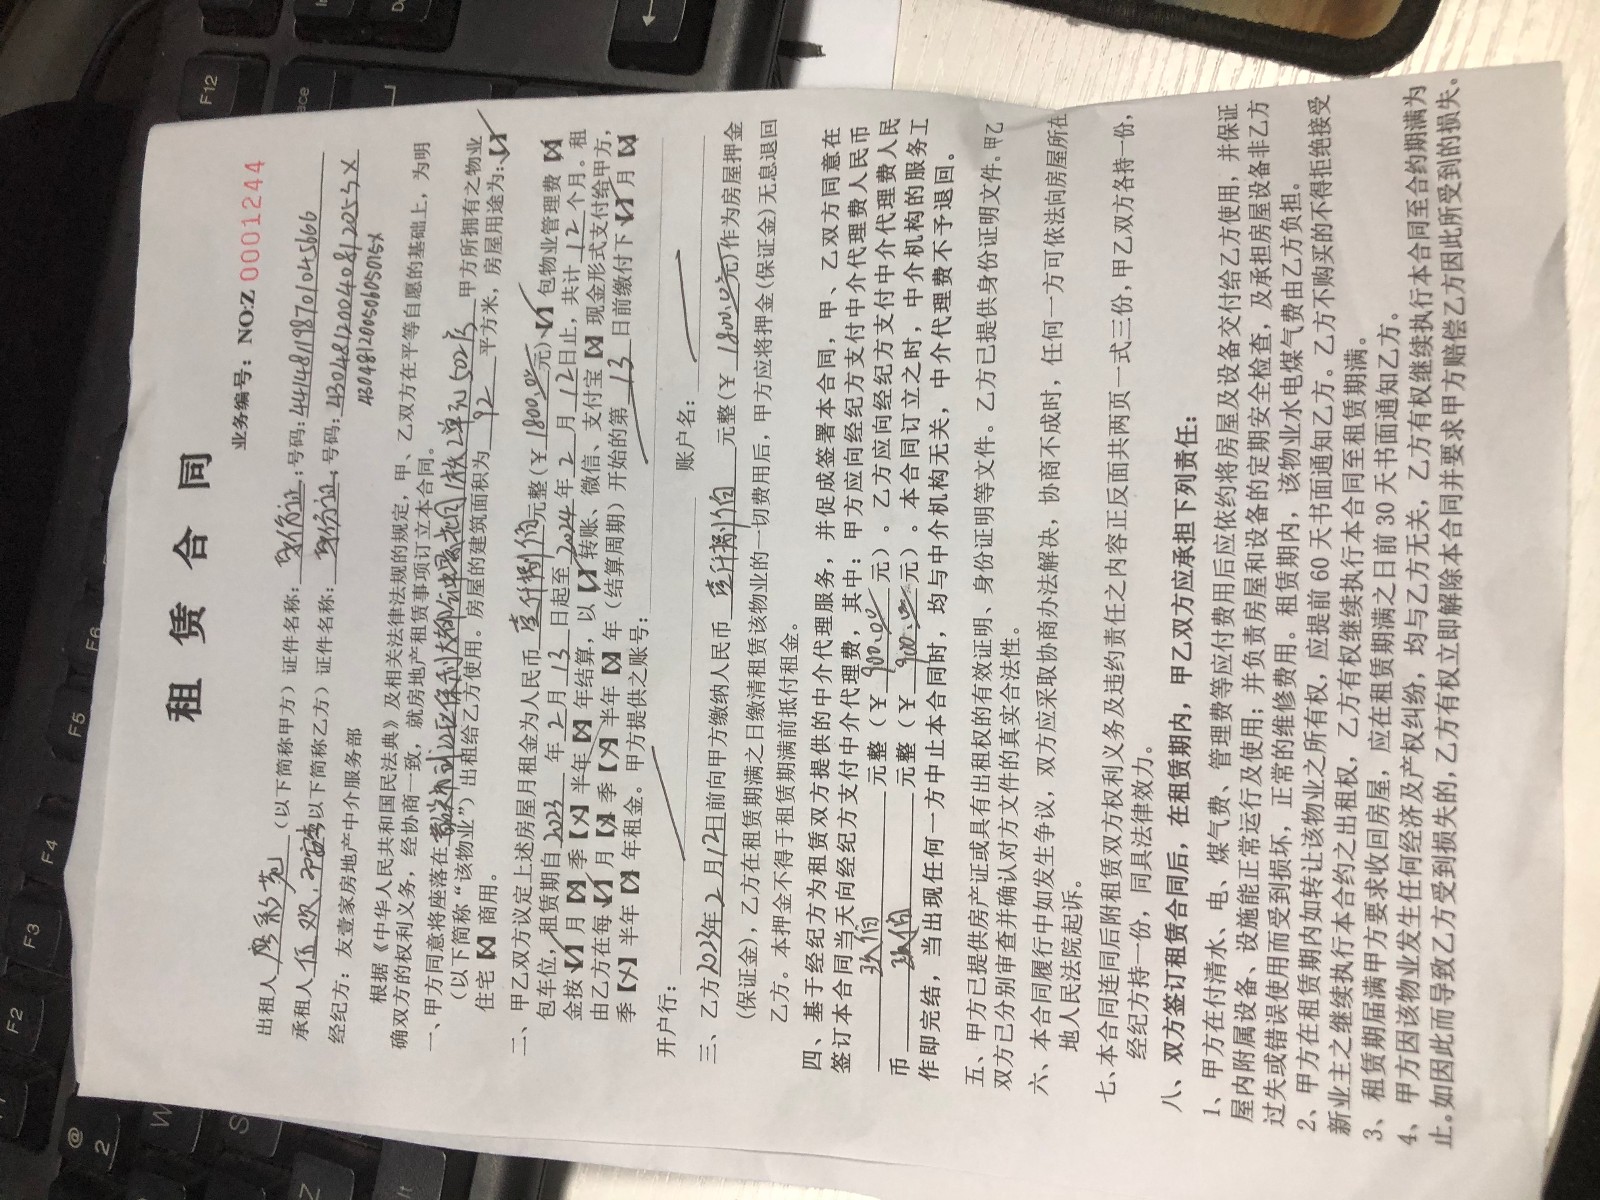 租 赁 合 同
业务编号：NO:Z 0001244
出租人廖彩苑（以下简称甲方）证件名称：身份证；号码：441481198701045666
承租人伍双、 以下简称乙方）证件名称：身份证；号码：43048120040812053X
经纪方：友壹家房地产中介服务部 43048120050605015X
根据《中华人民共和国民法典》及相关法律法规的规定，甲、乙双方在平等自愿的基础上，为明
确双方的权利义务，经协商一致，就房地产租赁事项订立本合同。
一、甲方同意将座落在 2单元502房 甲方所拥有之物业
（以下简称“该物业”）出租给乙方使用。房屋的建筑面积为 92 平方米，房屋用途为：【√】
住宅【×】商用。
二、甲乙双方议定上述房屋月租金为人民币 壹仟捌佰 元整（￥1800.00元）【√】包物业管理费【×】
包车位，租赁期自2023 年 2 月 13 日起至2024年 2 月 12日止，共计 12 个月。租
金按【√】月【×】季【×】半年【×】年结算，以【√】转账、微信、支付宝【×】现金形式支付给甲方，
由乙方在每【√】月【×】季【×】半年【×】年（结算周期）开始的第 13 日前缴付下【√】月【×】
季【×】半年【×】年租金。甲方提供之账号：
开户行： 账户名：
三、乙方2023年2月12日前向甲方缴纳人民币 壹仟捌佰 元整（￥1800.00元）作为房屋押金
（保证金），乙方在租赁期满之日缴清租赁该物业的一切费用后，甲方应将押金（保证金）无息退回
乙方。本押金不得于租赁期满前抵付租金。
四、基于经纪方为租赁双方提供的中介代理服务，并促成签署本合同，甲、乙双方同意在
签订本合同当天向经纪方支付中介代理费，其中：甲方应向经纪方支付中介代理费人民币
玖佰 元整（￥ 900.00 元）。乙方应向经纪方支付中介代理费人民
币 玖佰 元整（￥ 900.00 元）。本合同订立之时，中介机构的服务工
作即完结，当出现任何一方中止本合同时，均与中介机构无关，中介代理费不予退回。
五、甲方已提供房产证或具有出租权的有效证明、身份证明等文件。乙方已提供身份证明文件。甲乙
双方已分别审查并确认对方文件的真实合法性。
六、本合同履行中如发生争议，双方应采取协商办法解决，协商不成时，任何一方可依法向房屋所在
地人民法院起诉。
七、本合同连同后附租赁双方权利义务及违约责任之内容正反面共两页一式三份，甲乙双方各持一份，
经纪方持一份，同具法律效力。
八、双方签订租赁合同后，在租赁期内，甲乙双方应承担下列责任：
1、甲方在付清水、电、煤气费、管理费等应付费用后应依约将房屋及设备交付给乙方使用，并保证
屋内附属设备、设施能正常运行及使用；并负责房屋和设备的定期安全检查，及承担房屋设备非乙方
过失或错误使用而受到损坏，正常的维修费用。租赁期内，该物业水电煤气费由乙方负担。
2、甲方在租赁期内如转让该物业之所有权，应提前 60 天书面通知乙方。乙方不购买的不得拒绝接受
新业主之继续执行本合约之出租权，乙方有权继续执行本合同至租赁期满。
3、租赁期届满甲方要求收回房屋，应在租赁期满之日前 30 天书面通知乙方。
4、甲方因该物业发生任何经济及产权纠纷，均与乙方无关，乙方有权继续执行本合同至合约期满为
止。如因此而导致乙方受到损失的，乙方有权立即解除本合同并要求甲方赔偿乙方因此所受到的损失。
F12
F6
F5
F4
F3
F2
@
2
W
S
Z